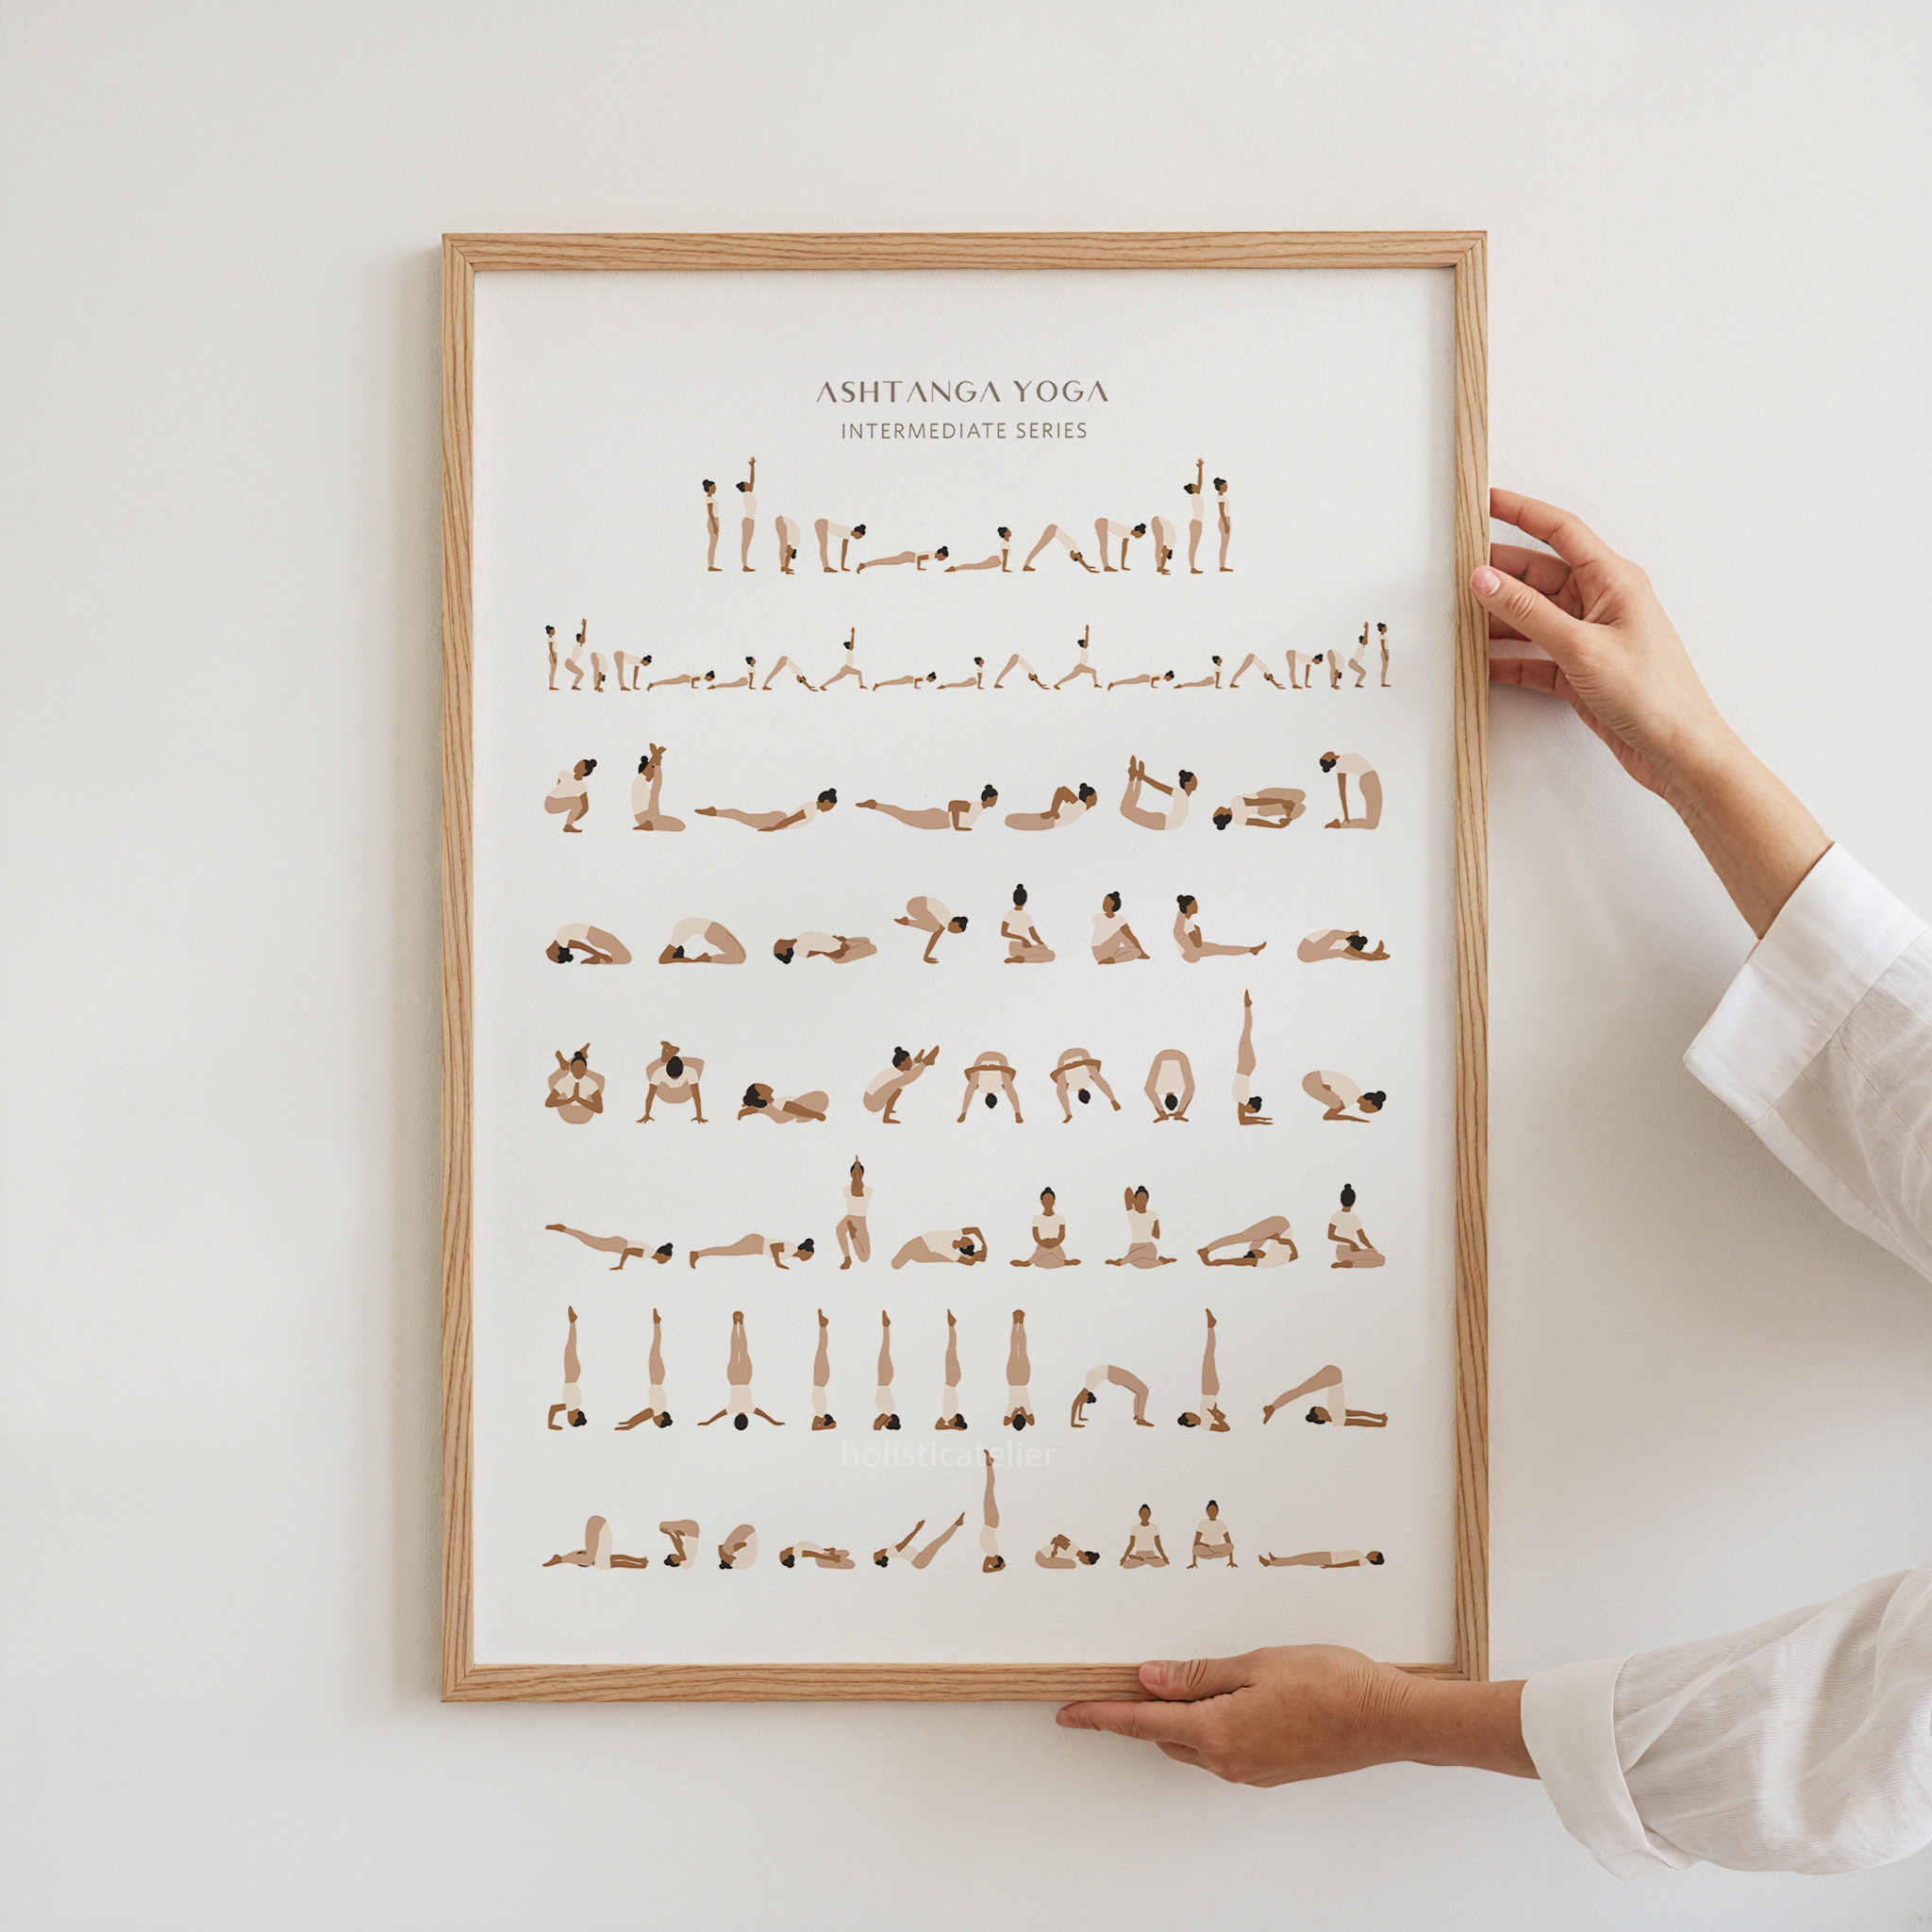 ASHTANGA YOGA
INTERMEDIATE SERIES
holisticatelier